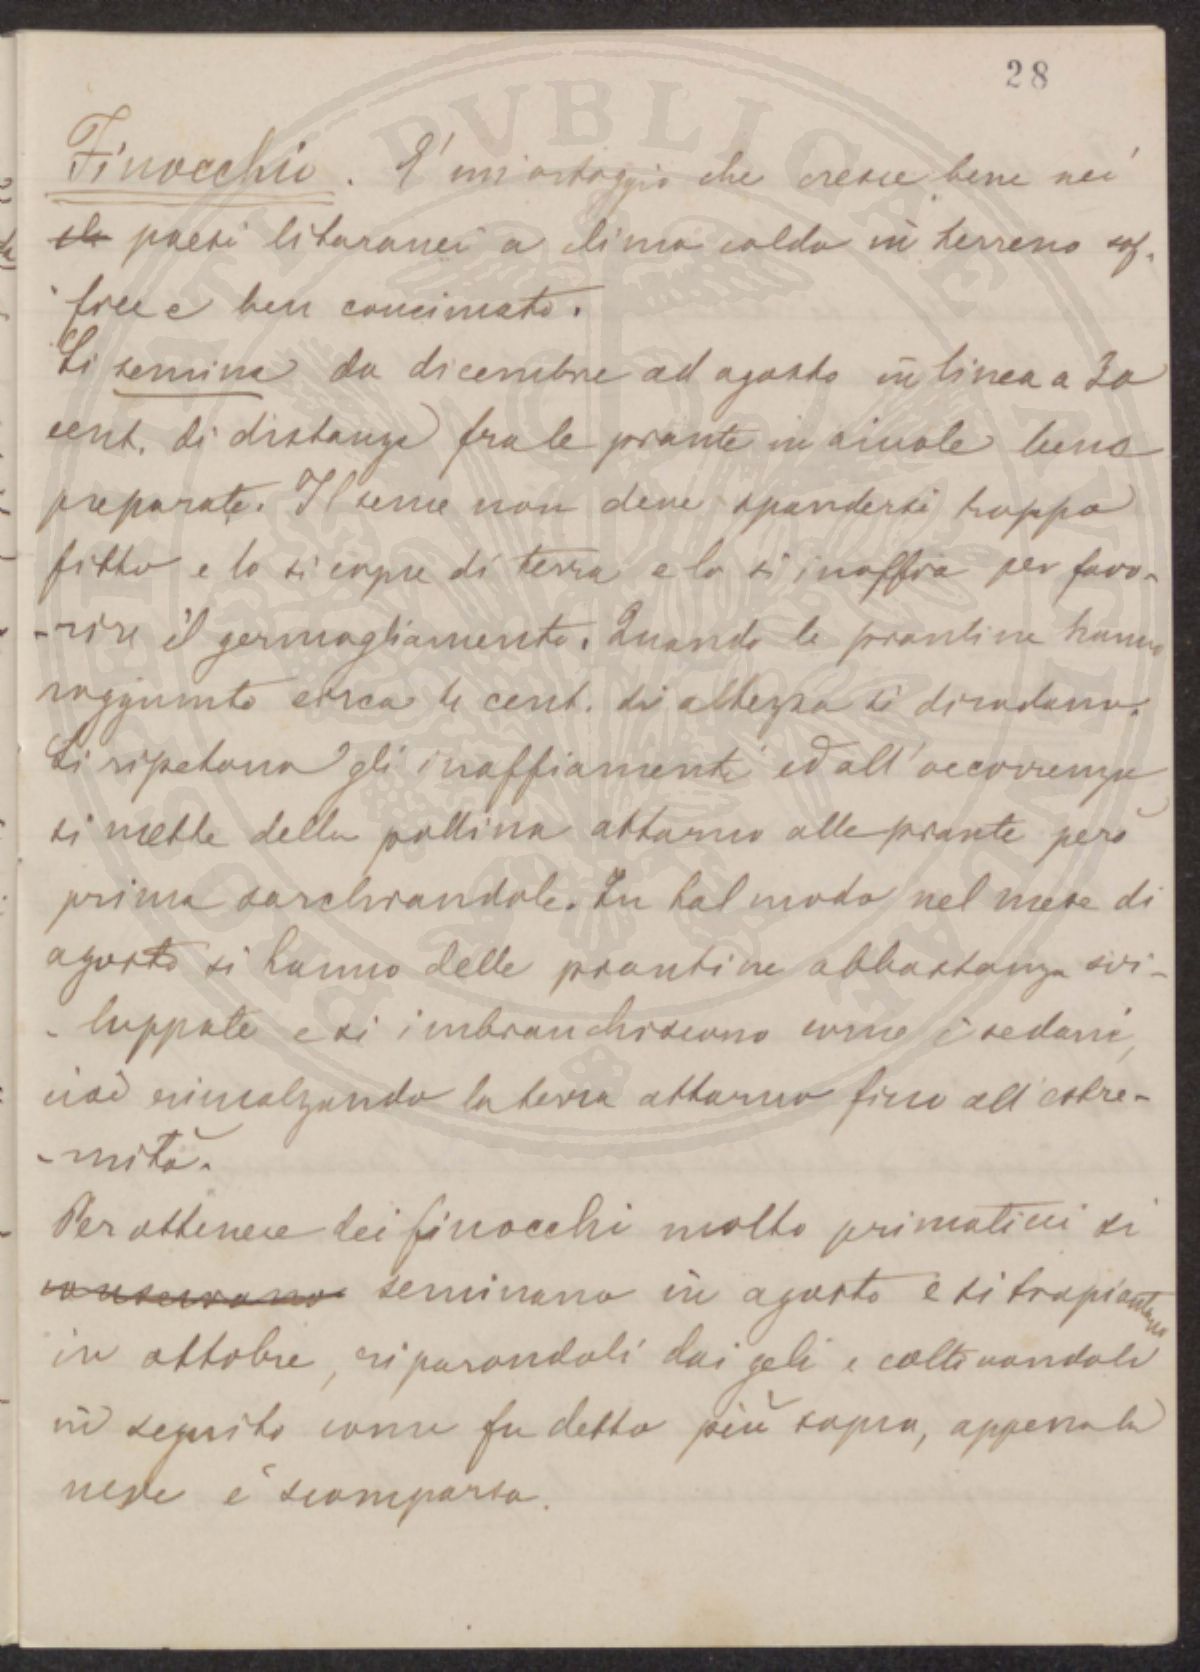 28
Finocchio. E' un'ortaggio che cresce bene nei
paesi litoranei a clima caldo in terreno sof-
fice e ben concimato.
Si semina da dicembre ad agosto in linea a 30
cent. di distanza fra le piante in aiuole bene
preparate. Il seme non deve spandersi troppo
fitto e lo si copre di terra e lo si inaffia per favo-
-rire il germogliamento. Quando le piantine hanno
raggiunto circa 4 cent. di altezza si diradano.
Si ripetono gli inaffiamenti ed all'occorrenza
si mette della pollina attorno alle piante però
prima sarchiandole. In tal modo nel mese di
agosto si hanno delle piantine abbastanza svi-
-luppate e si imbianchiscono come i sedani,
cioè rincalzando la terra attorno fino all'estre-
-mità.
Per ottenere dei finocchi molto primaticci si
conservano seminano in agosto e si trapiantano
in ottobre, riparandoli dai geli e coltivandoli
in seguito come fu detto più sopra, appena la
neve è scomparsa.
PVBLICAE VTILITATI